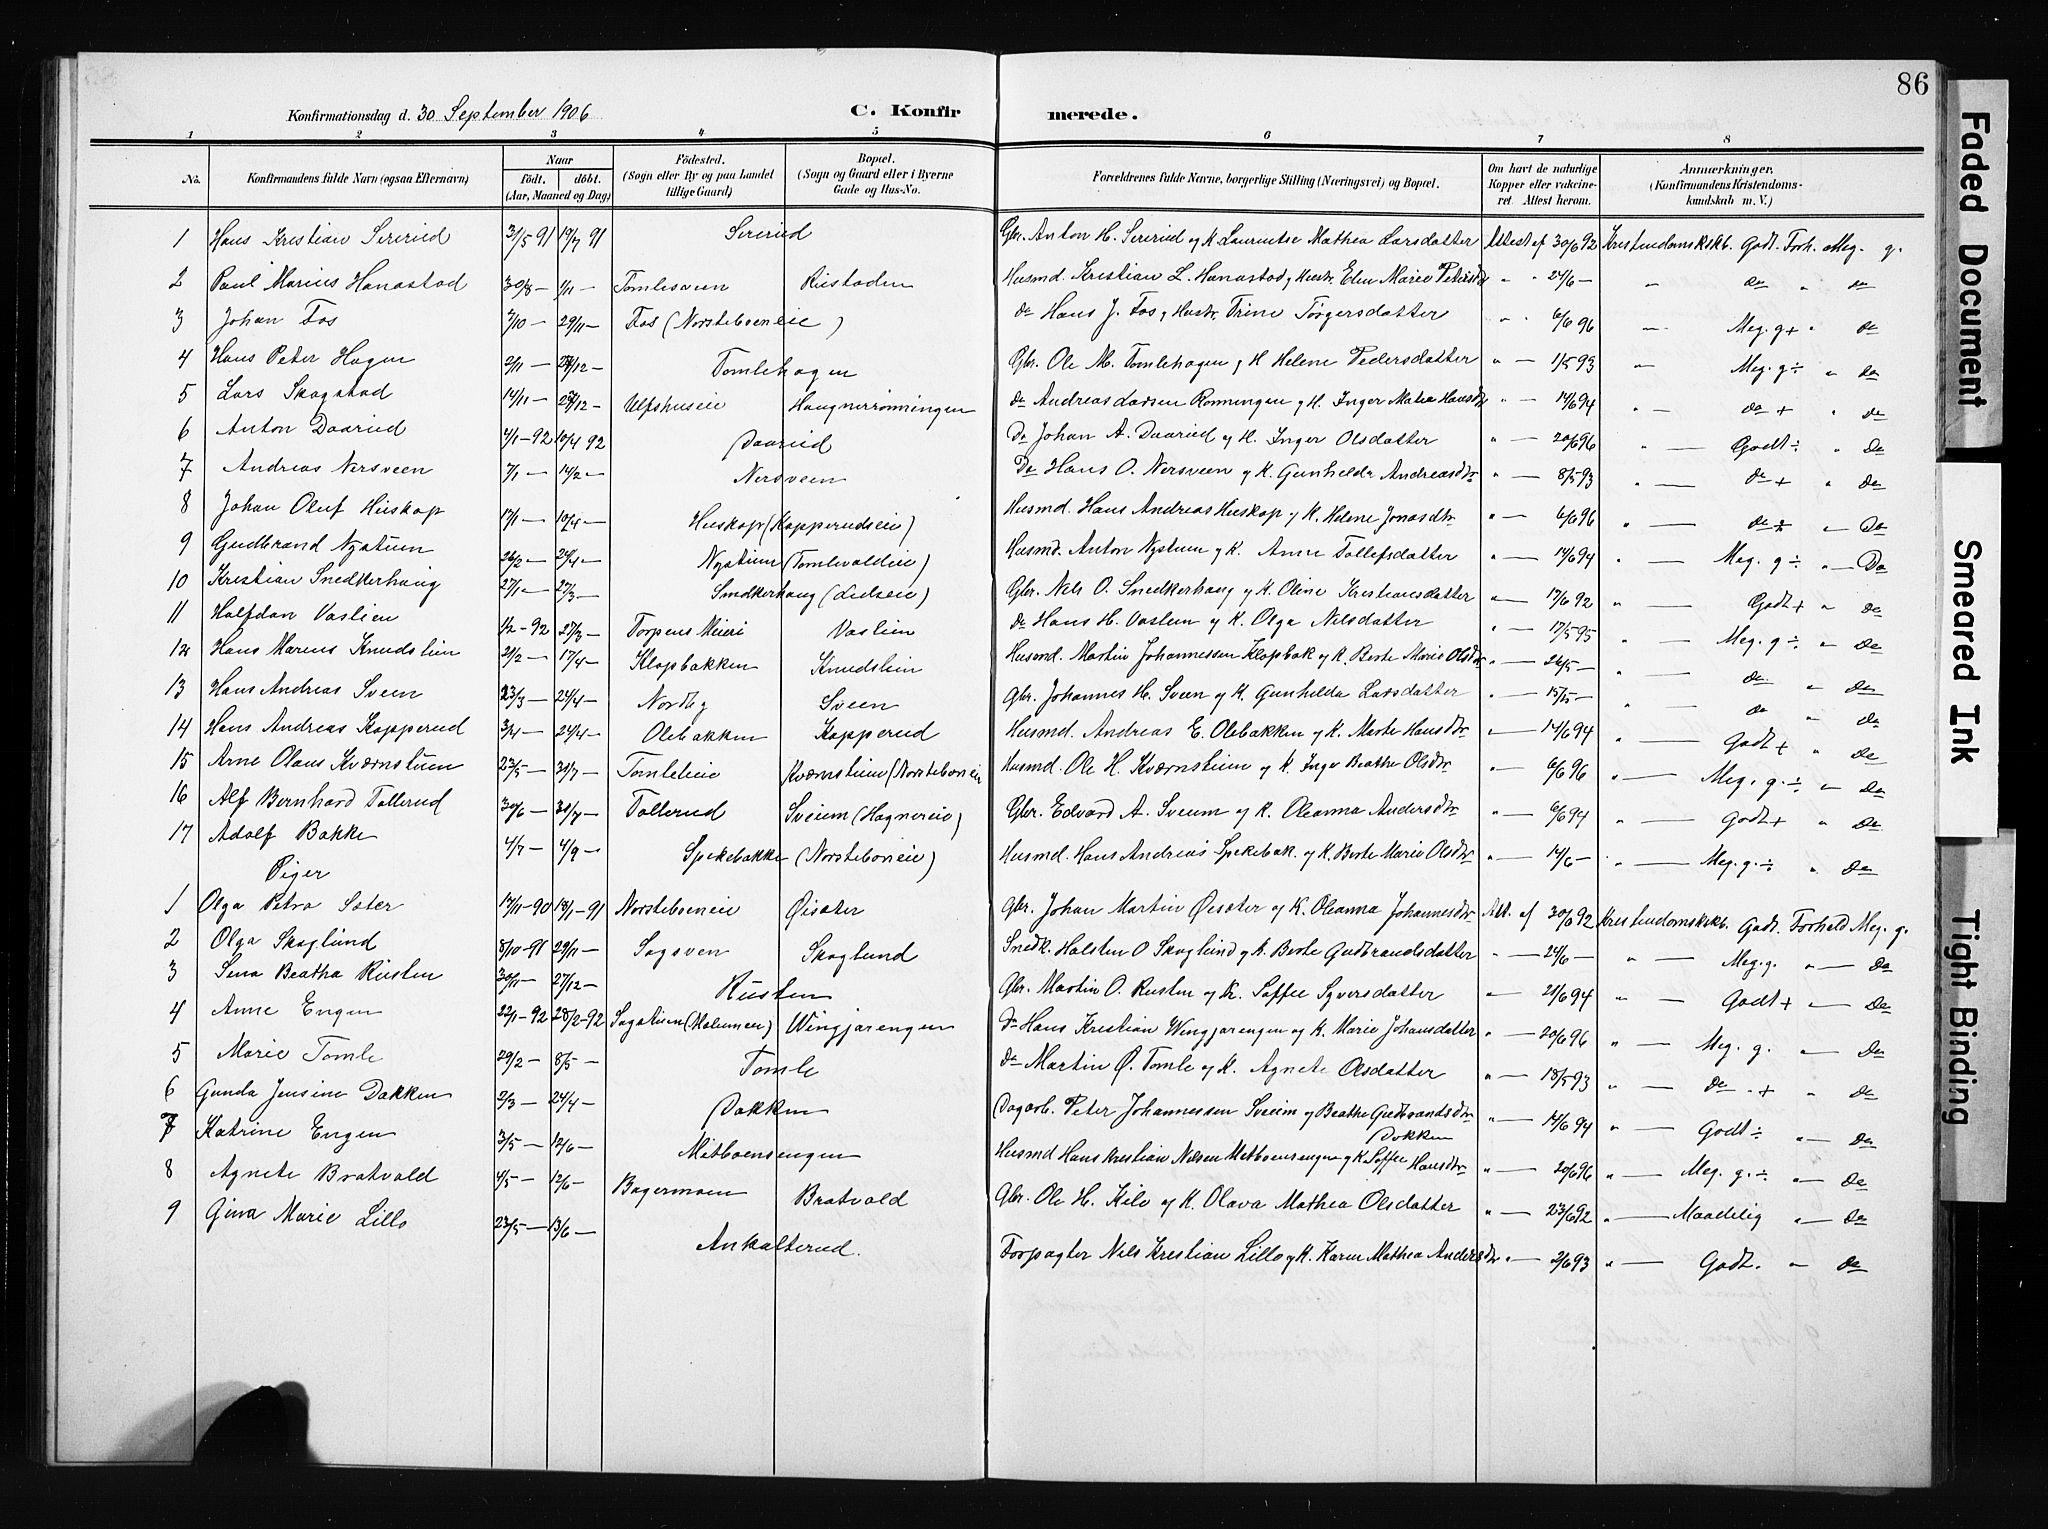 86
Konfirmationsdag d. 30 September 1906 C. Konfirmerede.
1 2 3 4 5 6 7 8
No. Konfirmandens fulde Navn (ogsaa Efternavn) Naar födt. döbt. (Aar, Maaned og Dag) Födested. (Sogn eller By og paa Landet tillige Gaard) Bopæl. (Sogn og Gaard eller i Byerne Gade og Hus-No. Forældrenes fulde Navne, borgerlige Stilling (Næringsvei) og Bopæl. Om havt de naturlige Kopper eller vaccineret. Attest herom. Anmærkninger. (Konfirmandens Kristendomskundskab m. V.)
1 Hans Kristian Sererud 31/5 91 19/7 91 Sererud Gbr. Anton H. Sererud og K. Laurentse Mathea Larsdatter Attest af 30/6 92 Kristendomskskb. Godt. Forh. Meg. g.
2 Paul Marius Hanastad 30/8 — 1/11 — Tomlesveen Rustaden Husmd. Kristian L. Hanastad og Hustr. Elen Marie Petersdtr " " 24/6 — " do " do
3 Johan Fos 7/10 — 29/11 — Fos (Norsteboeneie) do Hans J. Fos og Hustr. Trine Törgersdatter " " 6/6 96 " Meg. g + " do
4 Hans Peter Hagen 2/11 — 27/12 — Tomlehagen Gbr. Ole M. Tomlehagen og H Helene Pedersdatter " — 1/5 93 " Meg. g ÷ " do
5 Lars Skogstad 14/11 — 27/12 — Ulfshuseie Haugnerrönningen do Andreas Larsen Rönningen og H. Inger Matea Hansdtr " — 14/6 94 " — do + " do
6 Anton Daarud 4/1 — 92 10/4 92 Daarud Do Johan A. Daarud og H. Inger Olsdatter " — 20/6 96 " — Godt ÷ " do
7 Andreas Nersveen 7/1 — 14/2 — Nersveen Do Hans O. Nersveen og K. Gunhelda Andreasdtr " — 8/5 93 " — do + " do
8 Johan Oluf Huskop 17/1 — 10/4 — Huskop (Kopperudseie) Husmd. Hans Andreas Huskop og K. Helene Jonasdtr " — 6/6 96 " — do + " — Do
9 Gudbrand Nystuen 26/2 — 24/4 — Nystuen (Tomlevoldeie) Husmd. Anton Nystuen og K. Anne Tollefsdatter " — 14/6 94 " — Meg. g ÷ " — Do
10 Kristian Snedkerhaug 27/1 — 27/3 — Snedkerhaug (Lieseie) Gbr. Nils O. Snedkerhaug og K. Oline Kristiansdatter " — 17/6 92 " — Godt + " do
11 Halfdan Vaslien 1/2 — 92 27/3 — Torpens Meieri Vaslien do Hans H. Vaslien og K. Olga Nilsdatter " — 17/5 95 " — Meg. g ÷ " do
12 Hans Marius Knudslien 21/2 — 17/4 — Klopbakken Knudslien Husmd. Martin Johannessen Klopbak og K. Berte Marie Olsdtr " — 26/5 — " — do " do
13 Hans Andreas Sveen 23/3 — 24/4 — Nordby Sveen Gbr. Johannes H. Sveen og K. Gunhilda Larsdatter " — 15/5 — " — do " do
14 Hans Andreas Kopperud 3/4 — 24/4 — Olebakken Kopperud Husmd. Andreas E. Olebakken og K. Marte Hansdtr " — 14/6 94 " — Godt + " do
15 Arne Olaus Kværnstuen 23/5 — 31/7 — Tomleleie Kværnstuen (Norsteboneie Husmd. Ole H. Kværnstuen og K. Inger Beathe Olsdtr " — 6/6 96 " — Meg. g. ÷ " — do
16 Alf Bernhard Tollerud 30/6 — 31/7 — Tollerud Sveum (Hagnereie) Gbr. Edvard A. Sveum og K. Oleanna Andersdtr " — 6/6 94 " — Godt + " do
17 Adolf Bakke 4/7 — 4/9 — Spekebakke (Norsteboneie) Husmd. Hans Andreas Spekebak. og K. Berte Marie Olsdtr " — 14/6 — " — Meg. g. ÷ " do
Piger
1 Olga Petra Sæter 17/11 — 90 18/1 — 91 Norsteboeneie Øisæter Gbr. Johan Martin Øisæter og K. Oleanna Johannesdtr Att. af 30/6 92 Kristendomskskb. Godt. Forhold Meg. g.
2 Olga Skoglund 8/10 — 91 29/11 — Sagsven Skoglund Snedk. Halsten O Skoglund og K. Berte Gudbrandsdatter " — 24/6 — " — Meg. g. " — do
3 Sena Beatha Rusten 30/11 — 27/12 — Rusten Gbr. Martin O. Rusten og K. Soffie Syversdatter " — 21/6 94 " — Godt + " — Do
4 Anne Engen 22/1 — 92 28/2 — 92 Sagstuen (Holumeie) Wingjarengen do Hans Kristian Wengjarengen og K. Marie Johansdatter " — 20/6 96 " — Meg. g. " — Do
5 Marie Tomle 29/2 — 8/5 — Tomle do Martin Ø. Tomle og K. Agnete Olsdatter " — 18/5 93 " — do . + " do
6 Gunda Jensine Dokken 2/3 — 24/4 — Dokken Dagarb. Peter Johannessen Sveum og Beathe Gudbrandsdtr Dokken " — 14/6 94 " — Godt ÷ " — Do
7 Katrine Engen 3/5 — 12/6 — Metboensengen Husmd Hans Kristian Nilsen Metboensengen og K. Soffie Hansdtr " — 20/6 96 " — Meg. g. ÷ " — do
8 Agnete Bratvold 4/5 — 12/6 — Bagermoen Bratvold Gbr. Ole H. Kile og K. Olava Mathea Olsdatter " — 23/6 92 " — Maadelig " — do
9 Gina Marie Lillo 23/5 — 13/6 — Ankalterud. Forpagter Nils Kristian Lillo og K. Karen Mathea Andersdtr " — 2/6 93 " — Godt. " do
Faded Document
Smeared Ink
Tight Binding